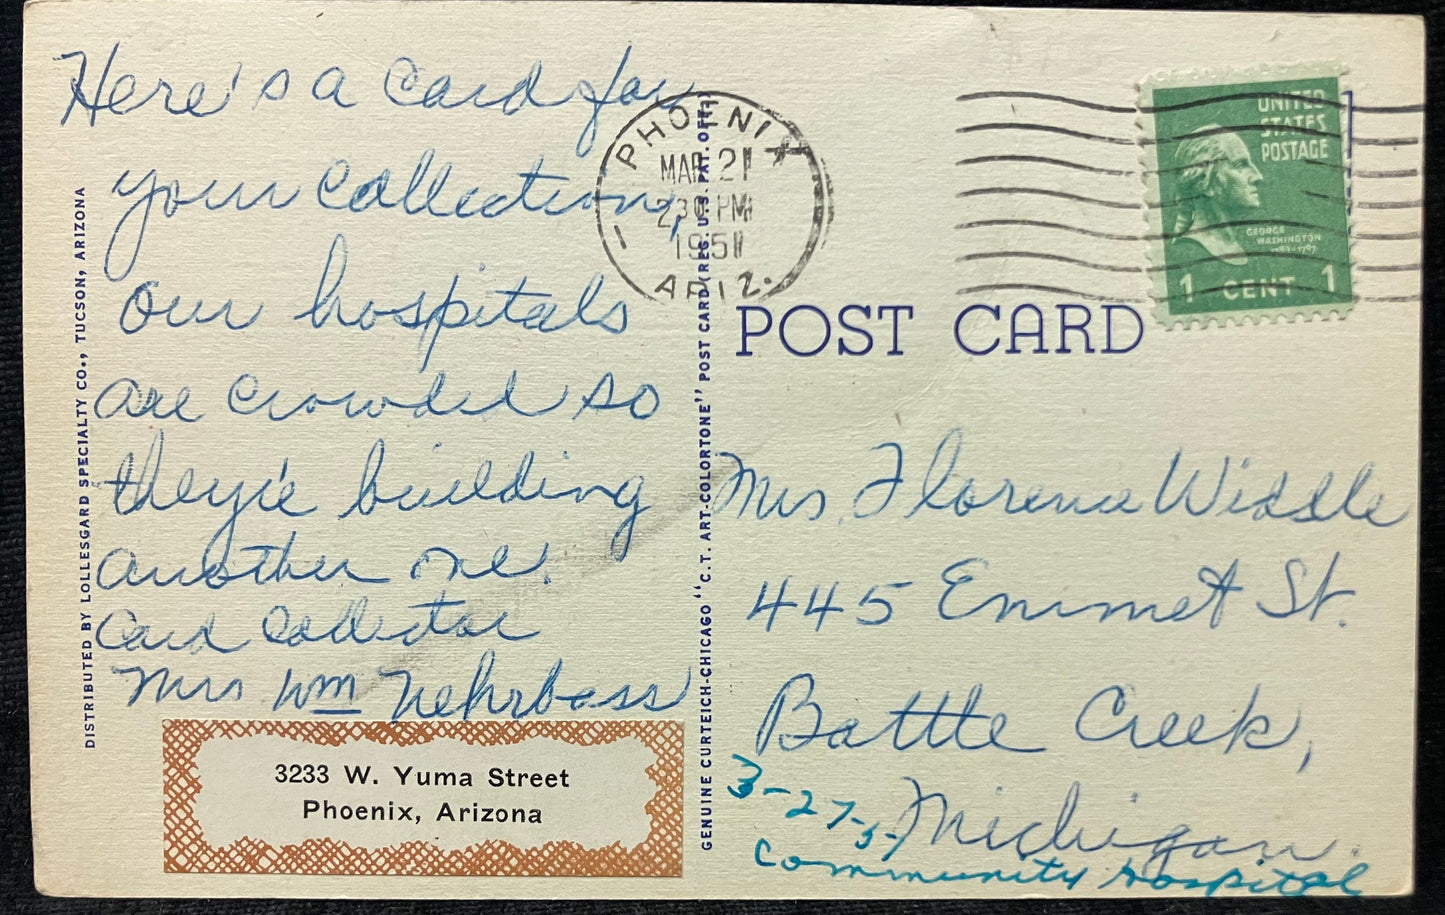 Here's a card for
your collection,
Our hospitals
are crowded so
they're building
another one.
Card Collector
Mrs Wm Nehrbass
3233 W. Yuma Street
Phoenix, Arizona
DISTRIBUTED BY LOLLESGARD SPECIALTY CO., TUCSON, ARIZONA
GENUINE CURTEICH-CHICAGO "C.T. ART-COLORTONE" POST CARD (REG. U.S. PAT. OFF.)
PHOENIX
MAR 21
230 PM
1951
ARIZ.
UNITED
STATES
POSTAGE
GEORGE
WASHINGTON
1789-1797
1 CENT 1
POST CARD
Mrs. Florence Widdle
445 Emmet St.
Battle Creek,
Michigan.
3-27-51
Community Hospital